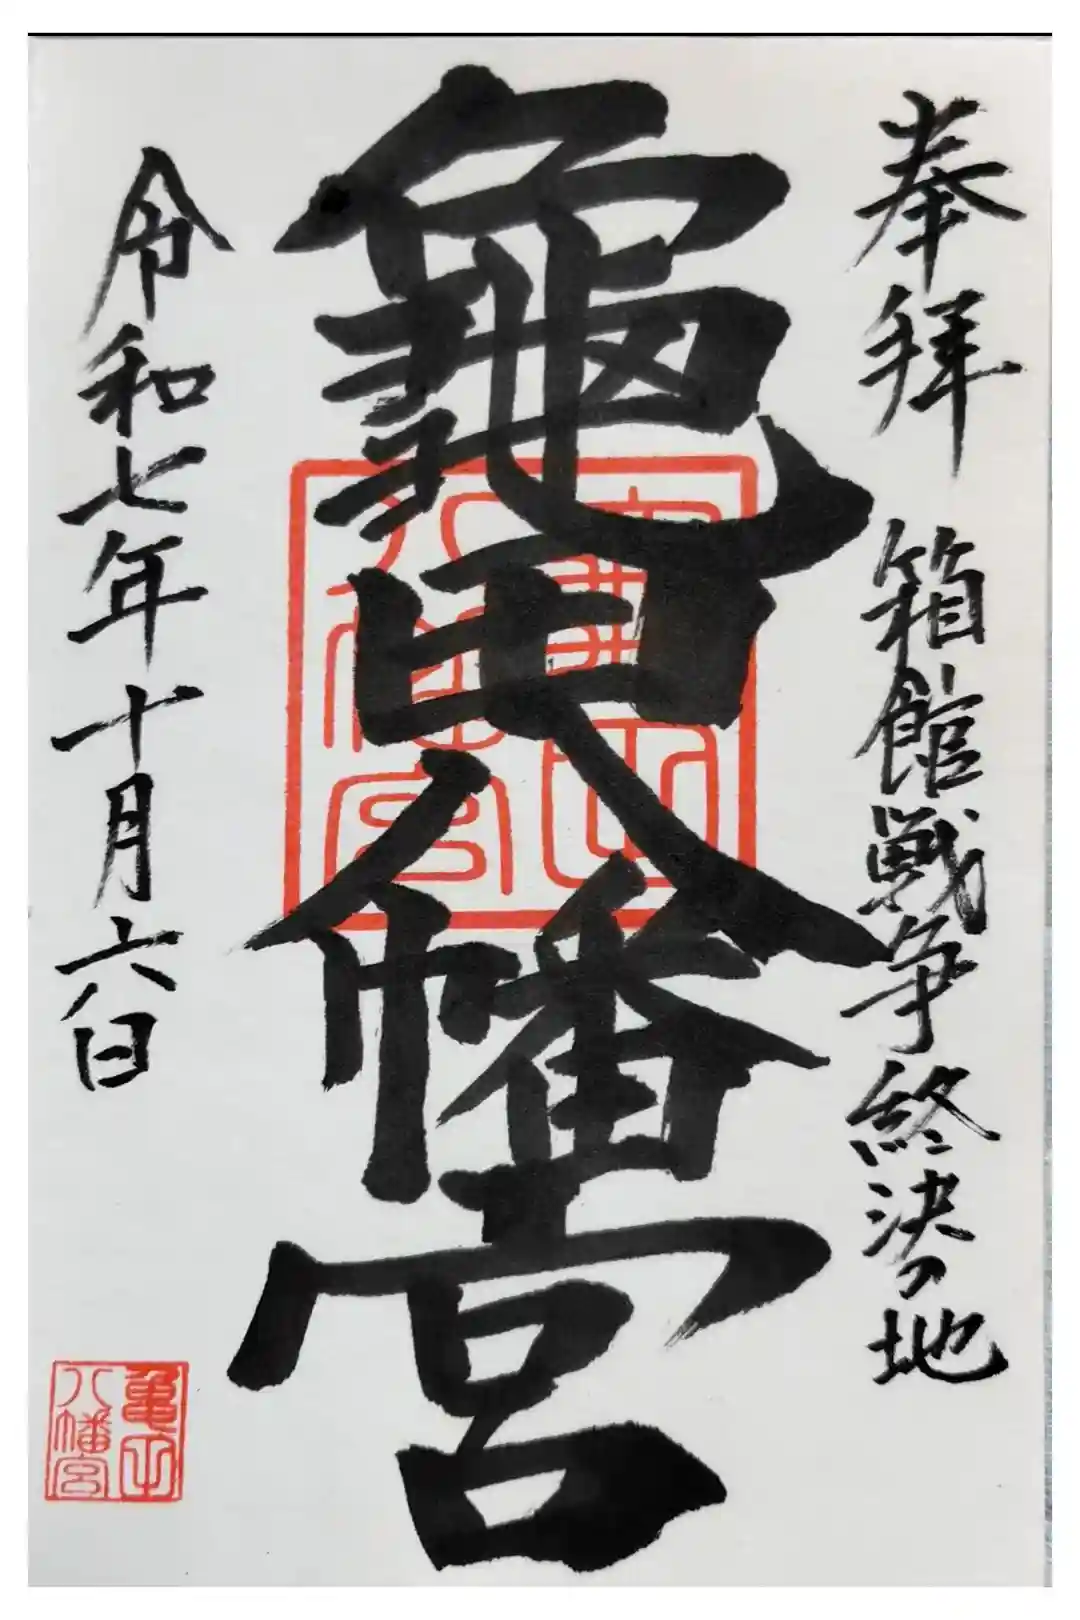 奉拝 箱館戦争終決の地
龜田八幡宮
令和七年十月六日
亀田
八幡宮